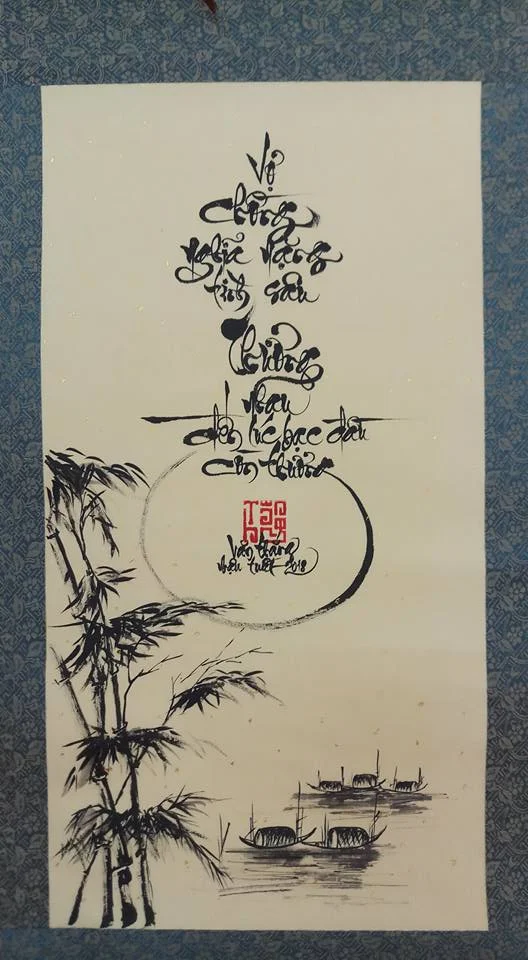 Vợ
chồng
nghĩa nặng
tình sâu
Thương
nhau
đến lúc bạc đầu
còn thương
Văn Thắng
Mậu Tuất 2018